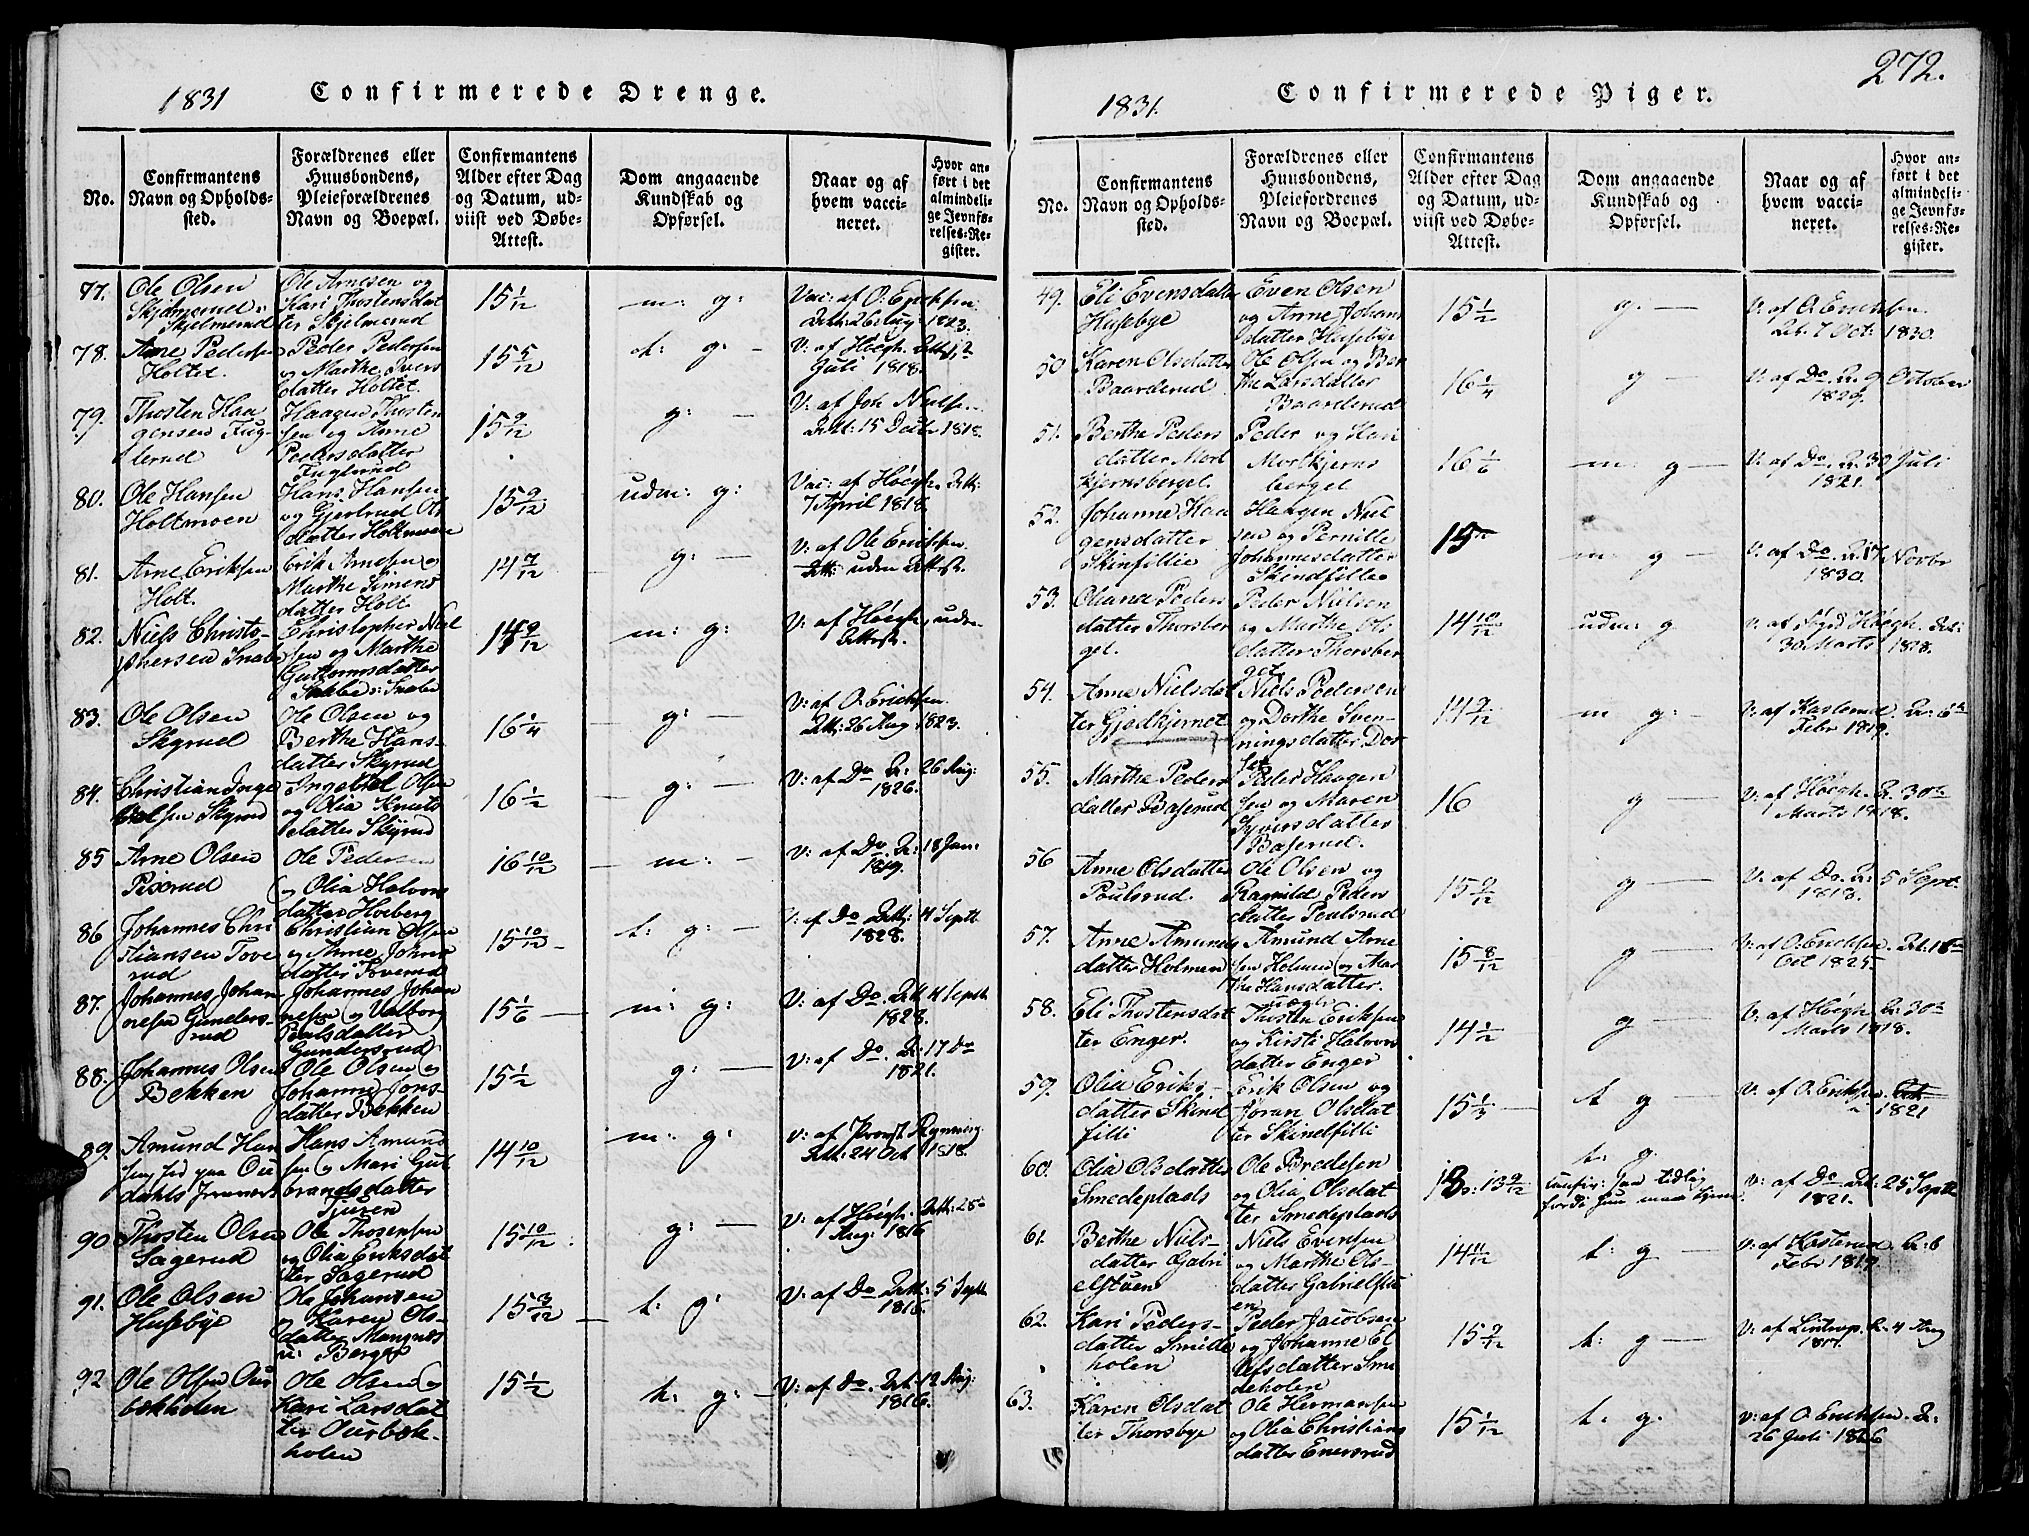 1831 Confirmerede Drenge.
No.
Confirmantens
Navn og Opholds-
sted.
Forældrenes eller
Huusbondens,
Pleieforældrenes
Navn og Boepæl.
Confirmantens
Alder efter Dag
og Datum, ud-
viist ved Døbe-
Attest.
Dom angaaende
Kundskab og
Opførsel.
Naar og af
hvem vacci-
neret.
Hvor an-
ført i det
almindeli-
ge Jevnfø-
relses-Re-
gister.
77. Ole Olsen
Skjelmerud
Ole Arnesen og
Kari Thostensdat
ter Skjelmerud
15 1/12
m: g:
Vac: af O: Eriksen
Att: 26 Aug: 1823.
78. Arne Pedersen
Holtet.
Peder Pedersen
og Marthe Ivers
datter Holtet.
15 5/12
t: g: -
V: af Høegh. Att: 12
Juli 1818.
79. Thosten Haa
gensen Fug-
lerud
Haagen Thosten
sen og Anne
Pedersdatter
Fuglerud
15 9/12
g: -
V: af Joh Nielsen
Att: 15 Decbr 1818.
80. Ole Hansen
Holtmoen
Hans Hansen
og Gjertrud Ols
datter Holtmoen
15 9/12
udm: g:
Vac: af Høegh. Att:
7 April 1818.
81. Arne Eriksen
Holt.
Erik Arnesen og
Marthe Simens
datter Holt.
14 7/12
g: -
V: af Ole Erichsen.
uden Attest.
82. Niels Christo-
phersen Snabe
Christopher Niel
sen og Marthe
Guttormsdatter
14 9/12
m: g:
V: af Høegh, uden
Attest.
83. Ole Olsen
Skyrud
Ole Olsen og
Berthe Hans-
datter Skyrud
16 1/4
g: -
V: af O. Erichsen.
Att: 26 Aug 1823.
84. Christian Inge
brelsen Skyrud
Ingebrel Olsen
og Olia Knuts
datter Skyrud
16 1/12
g: -
V: af Do A: 26 Aug:
1826.
85 Arne Olsen
Pixerud
Ole Pedersen
og Olia Halvors
datter Hoeberg
16 10/12
m: -
V: af Do. A: 18 Jan:
1819.
86 Johannes Chri
stiansen Tove
rud
Christian Olsen
og Anne Johns
datter Toverud
15 10/12
t: g: -
V: af Do Att: 4 Septb
1828.
87. Johannes Johan
nesen Gunders-
rud
Johannes Johan
nesen og Valborg
Paulsdatter
Gundersrud
15 1/6
m: g:
V: af Do. Att. 4 Septb
1823.
88. Johannes Olsen
Bekken
Ole Olsen og
Johanne Jons-
datter Bekken
15 1/12
g: -
V: af Do. A: 17 Do
1821.
89. Amund Han
sen
Hans Amund
sen og Mari Gul
brandsdatter
Tjuren
14 10/12
m: g:
V: af Provst Rynning
Att: 24 Oct 1818.
90 Thosten Olsen
Sagerud
Ole Thostensen
og Olia Eriksdat
ter Sagerud
15 10/12
g: -
V: af Høegh. Att: 25
Aug: 1816
91. Ole Olsen
Husebye
Ole Johansen
Karen Ols-
datter Mangnes
u: Berger
15 3/12
t: g:
V: af Do Att: 5 Septb
1816.
92 Ole Olsen Our
bekholen
Ole Olsen og
Kari Larsdat
ter Ourbek-
holen
15 1/12
t: g: -
V: af Do. Att. 12 Aug:
1816.
272.
1831. Confirmerede Piger.
No.
Confirmantens
Navn og Opholds-
sted.
Forældrenes eller
Huusbondens,
Pleiefordrenes
Navn og Boepæl.
Confirmantens
Alder efter Dag
og Datum, ud-
viist ved Døbe-
Attest.
Dom angaaende
Kundskab og
Opførsel.
Naar og af
hvem vacci-
neret.
Hvor an-
ført i det
almindeli-
ge Jevnfø-
relses-Re-
gister.
49. Eli Evensdatter
Husebye
Even Olsen
og Anne Johans
datter Husebye
15 1/2
g. -
V: af O. Erichsen.
At. 7 Oct: 1830.
50 Karen Olsdatter
Baarderud
Ole Olsen og Ber
the Larsdatter
Baarderud
16 1/4
g -
V: af Do. A. 9 October
1829.
51. Berthe Peders
datter Mort
kjernsberget.
Peder og Kari
Mortkjerns
berget
16 1/6
m: g -
V: af Do. A. 30 Juli
1821.
52. Johanne Haa
gensdatter
Skinfillie
Haagen Niel
sen og Pernille
Johannesdatter
Skindfillie
15
m: g -
V: af Do. A. 17 Novbr
1830.
53. Oliana Peders
datter Thorsber
get.
Peder Nielsen
og Marthe Ols
datter Thorsber
get
14 10/12
udm: g
V: af Høegh. Att:
30 Marts 1818.
54. Anne Nielsdat
ter Gjødkjernet
Niels Pedersen
og Dorthe Sven-
ningsdatter Dor
set
14 9/12
m g: -
V: af Kasterud. A: 6
Febr 1819.
55. Marthe Peders
datter Baserud
Peder Haagen
sen og Maren
Syversdatter
Baserud.
16
g -
V: af Høegh. A: 30te
Marts 1818.
56 Anne Olsdatter
Poulsrud.
Ole Olsen og
Ragnild Peders
datter Poulsrud
15 9/12
g -
V: af Do. A: 5 Sept.
1813.
57. Anne Amunds
datter Holmen
Amund Arne
sen Holmen og Mar
the Hansdatter.
15 8/12
g -
V: af O. Erichsen. At: 18
Oct 1825.
58. Eli Thostensdat
ter Enger.
Thosten Eriksen
og Kirsti Halvors
datter Enger
14 1/12
g -
V: af Høegh. A: 30te
Marts 1818.
59. Olia Eriks-
datter Skind
filli
Erik Olsen og
Jøran Olsdat
ter Skindfilli
15 1/3 -
t g -
V: af O. Eriksen
1821
60. Olia Olsdatter
Smedeplads
Ole Bredesen
og Olia Olsdat
ter Smedeplads
13 9/12
t. g.
confir: saa tidlig
fordi hun
V: af Do At: 25 Septb
1821.
61. Berthe Niels-
datter Gabri
elstuen
Niels Evensen
og Marthe Ols-
datter Gabrielstu
en
14 11/12
t: g -
V: af Kasterud. A: 6
Febr 1819.
62. Kari Peders-
datter Smitte
holen
Peder Jacobsen
og Johanne El
lefsdatter Smi
deholen
15 9/12
t: g -
V: af Lintrup. A: 4 Aug
63. Karen Olsdat
ter Thorsbye
Ole Hermansen
og Olia Christians
datter Enersrud
15 1/12
t. g.
V: af O. Erichsen. A:
26 Juli 1826